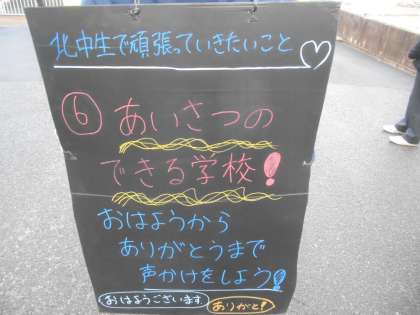 北中生で頑張っていきたいこと♡
⑥ あいさつの
できる学校!
おはようから
ありがとうまで
声かけをしよう!
おはようございます
ありがと!